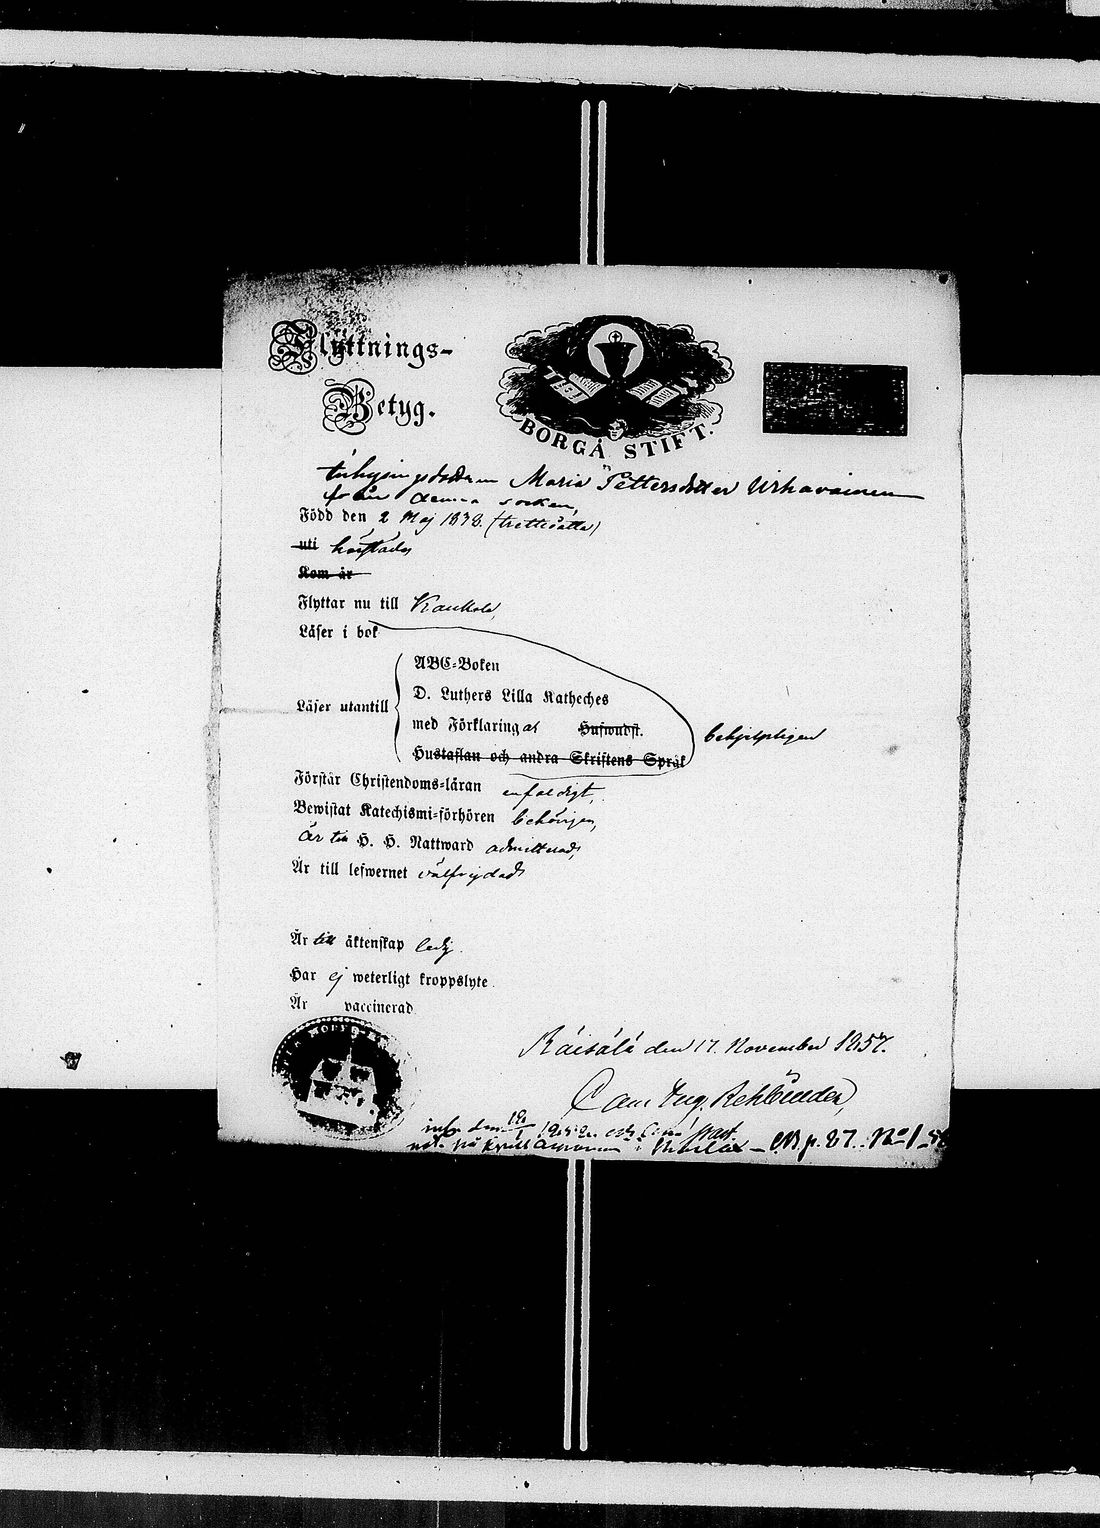 Flyttnings-
Betyg.
BORGÅ STIFT.
Inhysingsdottren Maria Pettersdotter Urhavainen
från denna socken,
Född den 2 Maj 1838. (trettioåtta)
uti härstädes
Kom år
Flyttar nu till Kaukola,
Läser i bok
ABC-Boken
D. Luthers Lilla Katheches
Läser utantill
med Förklaring Hufwudst. behjelpligen
Hustaflan och andra Skriftens Språk
Förstår Christendoms-läran enfaldigt,
Bewistat Katechismi-förhören behörigen,
Är till H. H. Nattward admitterad,
Är till lefwernet välfrejdad
Är till äktenskap ledig.
Har ej weterligt kroppslyte
Är vaccinerad
Räisälä den 17. November 1857.
Aug. Rehbinder,
p. 87. No 1